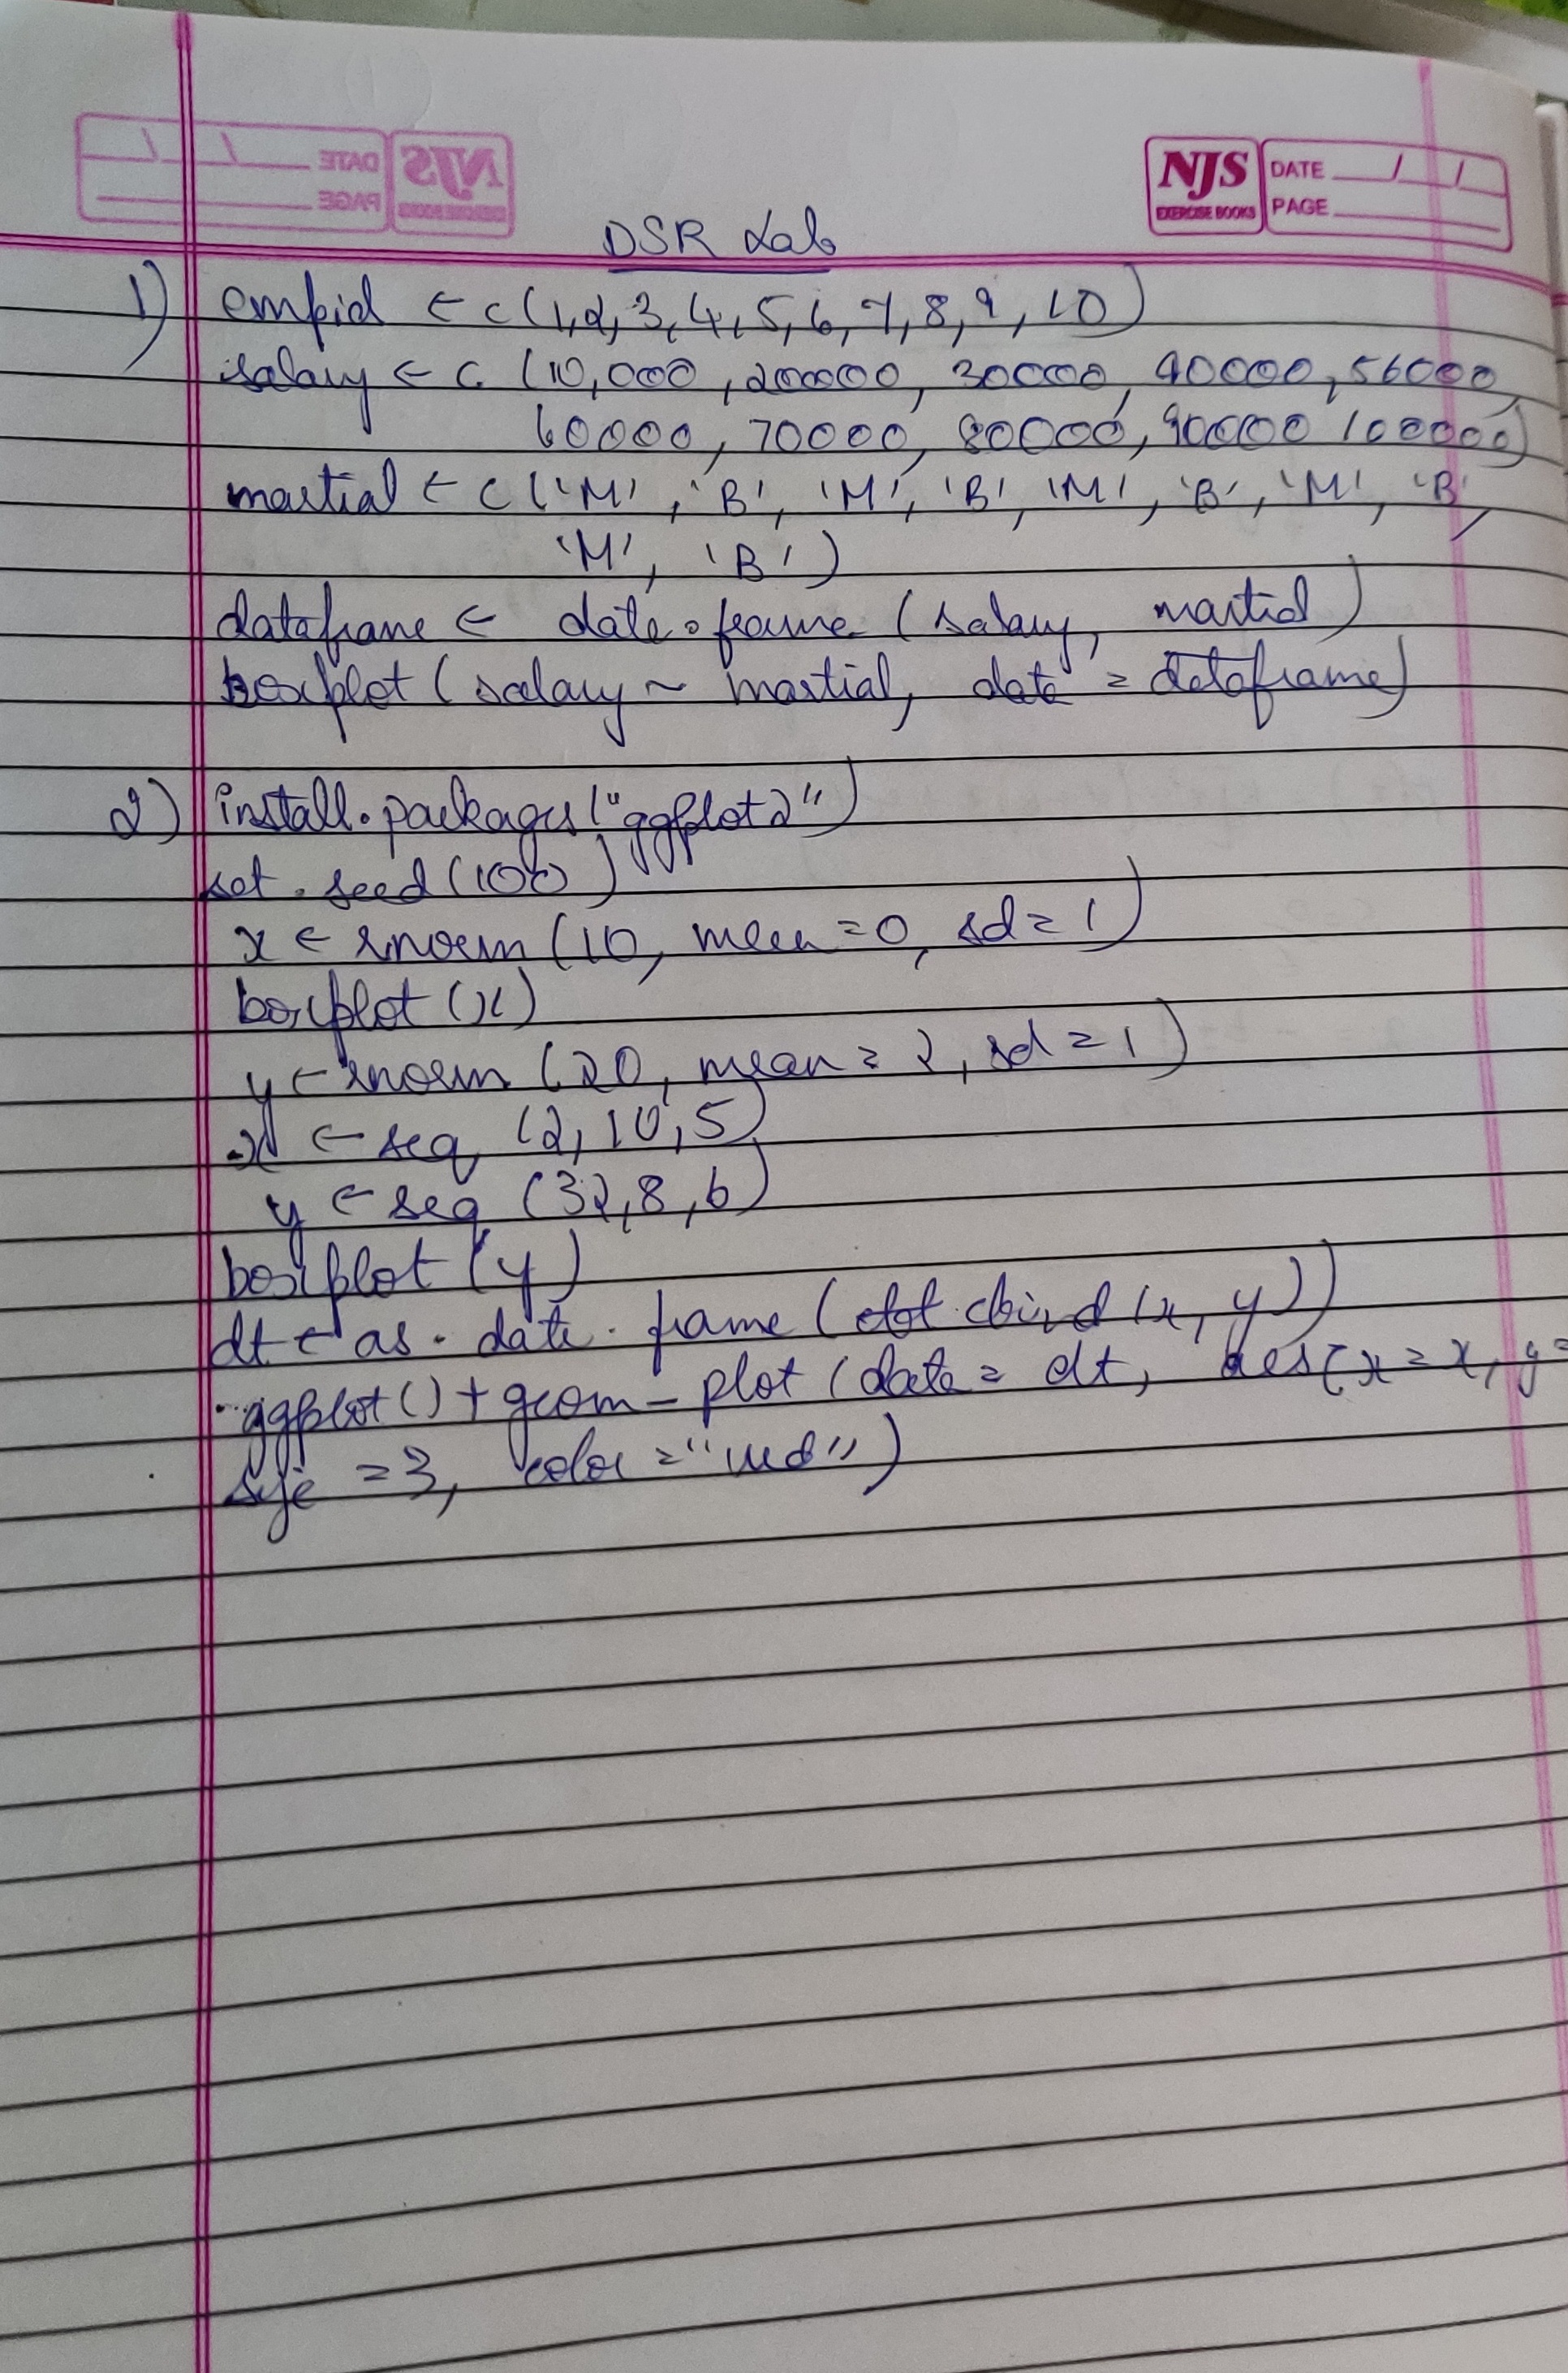 NJS
EXERCISE BOOKS
DATE / /
PAGE
DSR Lab
1) empid ← c(1,2,3,4,5,6,7,8,9,10)
salary ← c (10,000, 20000, 30000, 40000, 56000,
60000, 70000, 80000, 90000 100000)
martial ← c ('M', 'B', 'M', 'B', 'M', 'B', 'M', 'B',
'M', 'B')
dataframe ← data.frame (salary, martial)
boxplot (salary ~ martial, data = dataframe)
2) install.packages ("ggplot2")
set.seed (100)
x ← rnorm (10, mean = 0, sd = 1)
boxplot (x)
y ← rnorm (20, mean = 2, sd = 1)
x ← seq (2, 10, 5)
y ← seq (32, 8, 6)
boxplot (y)
dt ← as.data.frame (cbind (x, y))
ggplot () + geom_plot (data = dt, aes (x = x, y =
size = 3, color = "red")